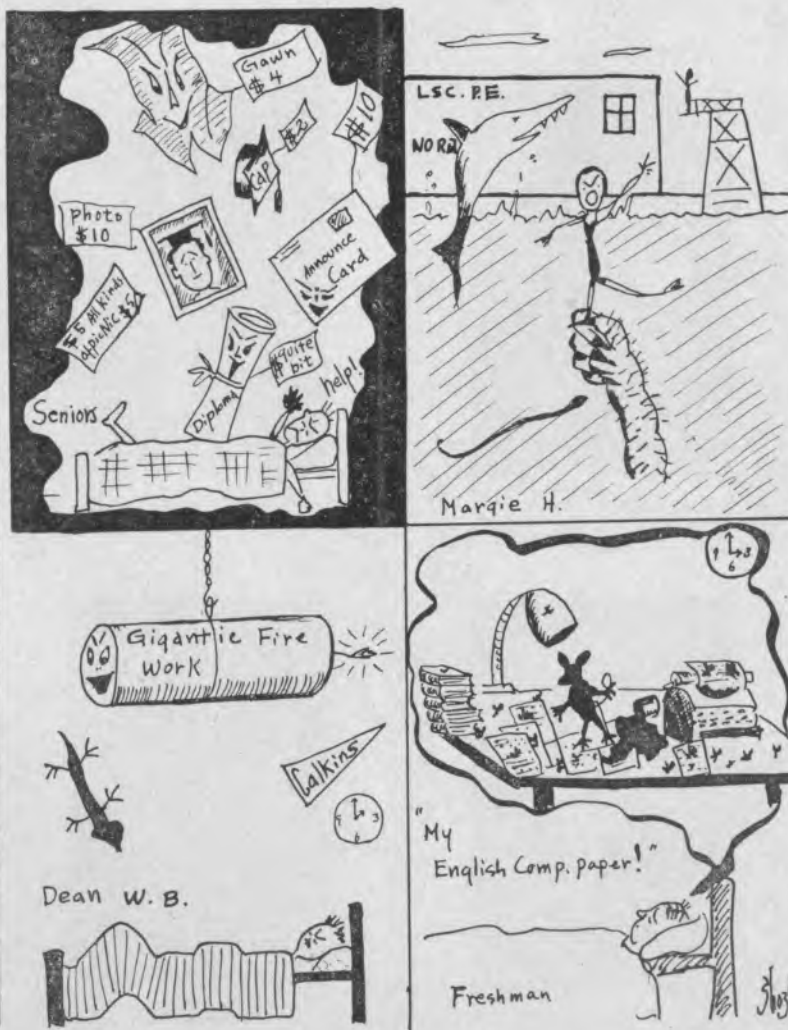 Gawn
$4
$2
$10
CAP
Photo
$10
Announce
Card
$5 All Kinds
of picnic $5
$quite
bit
Diploma
help!
Seniors
LSC. P.E.
Margie H.
Gigantic Fire
Work
Calkins
9 3
6
Dean W. B.
9 3
6
"My
English Comp. paper!"
Freshman